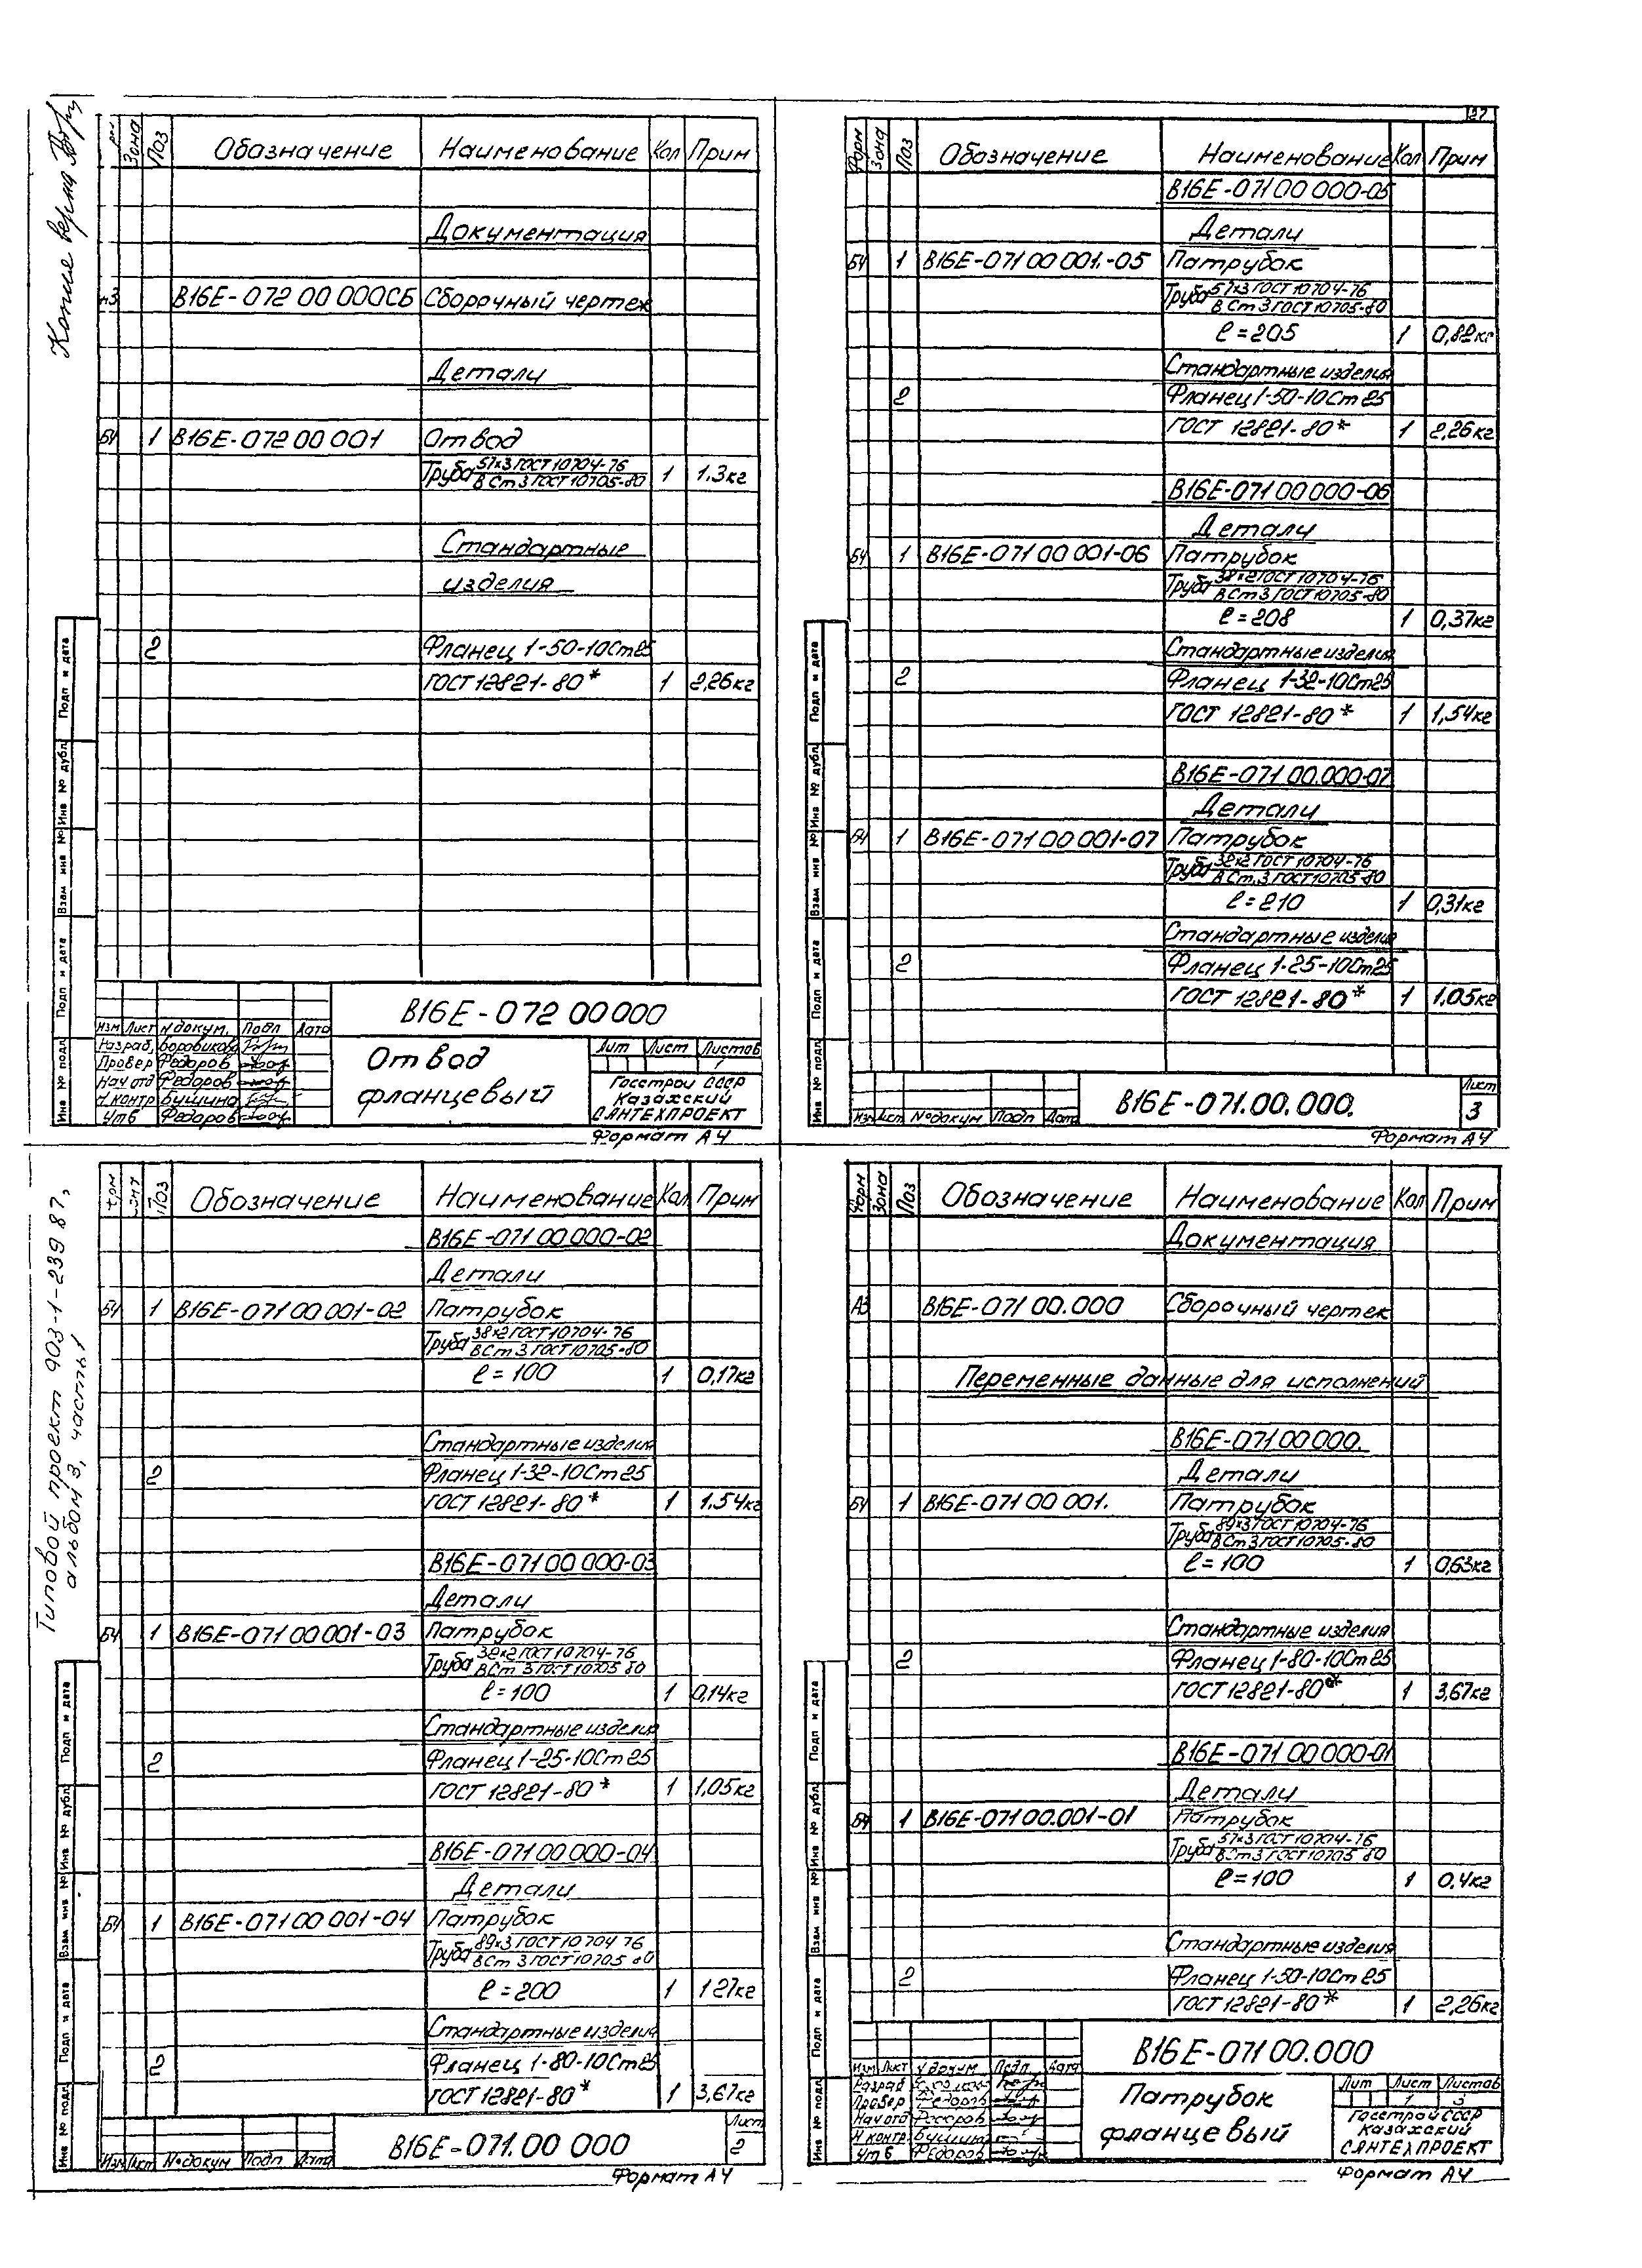 Копия верна
Зона Поз Обозначение Наименование Кол Прим
Документация
В16Е-072 00 000СБ Сборочный чертеж
Детали
БЧ 1 В16Е-072 00 001 Отвод
Труба 57×3 ГОСТ 10704-76
В Ст 3 ГОСТ 10705-80 1 1.3кг
Стандартные
изделия
2 Фланец 1-50-10Ст25
ГОСТ 12821-80* 1 2,26кг
Подп и дата
Инв № дубл
Взам инв №
Подп и дата
Инв № подл
В16Е-072 00 000
Изм Лист N докум. Подп Дата
Разраб. Боровикова
Провер Федоров
Нач отд Федоров
Н.контр Бушина
Утв Федоров
Отвод
фланцевый
Лит Лист Листов
1
Госстрой СССР
Казахский
САНТЕХПРОЕКТ
Формат А4
27
Форм Зона Поз Обозначение Наименование Кол Прим
В16Е-071 00 000-05
Детали
БЧ 1 В16Е-071 00 001.-05 Патрубок
Труба 57×3 ГОСТ 10704-76
В Ст 3 ГОСТ 10705-80
ℓ=205 1 0,82кг
Стандартные изделия
2 Фланец 1-50-10Ст25
ГОСТ 12821-80* 1 2,26кг
В16Е-071 00 000-06
Детали
БЧ 1 В16Е-071 00 001-06 Патрубок
Труба 38×2 ГОСТ 10704-76
В Ст 3 ГОСТ 10705-80
ℓ=208 1 0,37кг
Стандартные изделия
2 Фланец 1-32-10Ст25
ГОСТ 12821-80* 1 1,54кг
В16Е-071 00.000-07
Детали
БЧ 1 В16Е-071 00 001-07 Патрубок
Труба 32×2 ГОСТ 10704-76
В Ст.3 ГОСТ 10705-80
ℓ=210 1 0,31кг
Стандартные изделия
2 Фланец 1-25-10Ст25
ГОСТ 12821-80* 1 1,05кг
Подп и дата
Инв № дубл
Взам инв №
Подп и дата
Инв № подл
Изм Лист № докум Подп Дата
В16Е-071.00.000.
Лист
3
Формат А4
Типовой проект 903-1-239 87,
альбом 3, часть 1
Поз Обозначение Наименование Кол Прим
В16Е-071 00 000-02
Детали
БЧ 1 В16Е-071 00 001-02 Патрубок
Труба 38×2 ГОСТ 10704-76
В Ст 3 ГОСТ 10705-80
ℓ=100 1 0,17кг
Стандартные изделия
2 Фланец 1-32-10Ст25
ГОСТ 12821-80* 1 1.54кг
В16Е-071 00 000-03
Детали
БЧ 1 В16Е-071 00 001-03 Патрубок
Труба 32×2 ГОСТ 10704-76
В Ст 3 ГОСТ 10705 80
ℓ=100 1 0,14кг
Стандартные изделия
2 Фланец 1-25-10Ст25
ГОСТ 12821-80* 1 1,05кг
В16Е-071 00 000-04
Детали
БЧ 1 В16Е-071 00 001-04 Патрубок
Труба 89×3 ГОСТ 10704 76
В Ст 3 ГОСТ 10705 80
ℓ=200 1 1 27кг
Стандартные изделия
2 Фланец 1-80-10Ст25
ГОСТ 12821-80* 1 3,67кг
Подп и дата
Инв № дубл
Взам инв №
Подп и дата
Инв № подл
Изм Лист № докум Подп Дата
В16Е-071.00 000
Лист
2
Формат А4
Форм Зона Поз Обозначение Наименование Кол Прим
Документация
А3 В16Е-071 00.000 Сборочный чертеж
Переменные данные для исполнений
В16Е-071 00 000.
Детали
БЧ 1 В16Е-071 00 001. Патрубок
Труба 89×3 ГОСТ 10704-76
В Ст 3 ГОСТ 10705-80
ℓ=100 1 0,63кг
Стандартные изделия
2 Фланец 1-80-10Ст25
ГОСТ 12821-80* 1 3,67кг
В16Е-071 00 000-01
Детали
БЧ 1 В16Е-071 00.001-01 Патрубок
Труба 57×3 ГОСТ 10704-76
В Ст 3 ГОСТ 10705 80
ℓ=100 1 0.4кг
Стандартные изделия
2 Фланец 1-50-10Ст25
ГОСТ 12821-80* 1 2,26кг
Подп и дата
Инв № дубл
Взам инв №
Подп и дата
Инв № подл
В16Е-071 00.000
Изм Лист N докум Подп Дата
Разраб
Провер Федоров
Нач отд Федоров
Н контр Бушина
Утв Федоров
Патрубок
фланцевый
Лит Лист Листов
1 3
Госстрой СССР
Казахский
САНТЕХПРОЕКТ
Формат А4